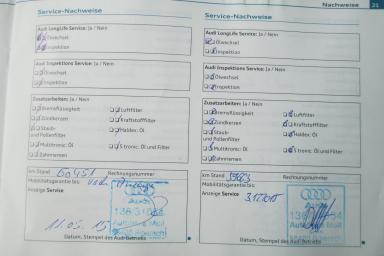 Nachweise 21
Service-Nachweise
Audi LongLife Service: Ja / Nein
Ölwechsel
Inspektion
Audi Inspektions Service: Ja / Nein
Ölwechsel
Inspektion
Zusatzarbeiten: Ja / Nein
Bremsflüssigkeit
Luftfilter
Zündkerzen
Kraftstofffilter
Staub-
und Pollenfilter
Haldex: Öl
Multitronic: Öl
S tronic: Öl und Filter
Zahnriemen
km Stand 60451
Rechnungsnummer
Mobilitätsgarantie bis:
Anzeige Service
Audi
11.05.15
Datum, Stempel des Audi Betriebs
Service-Nachweise
Audi LongLife Service: Ja / Nein
Ölwechsel
Inspektion
Audi Inspektions Service: Ja / Nein
Ölwechsel
Inspektion
Zusatzarbeiten: Ja / Nein
Bremsflüssigkeit
Luftfilter
Zündkerzen
Kraftstofffilter
Staub-
und Pollenfilter
Haldex: Öl
Multitronic: Öl
S tronic: Öl und Filter
Zahnriemen
km Stand
Rechnungsnummer
Mobilitätsgarantie bis:
Anzeige Service
Audi
Datum, Stempel des Audi Betriebs